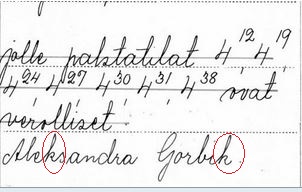 jolle palstatilat 4¹² 4¹⁹,
4²⁴, 4²⁷, 4³⁰, 4³¹, 4³⁸ ovat
verolliset.
Aleksandra Gorbik.